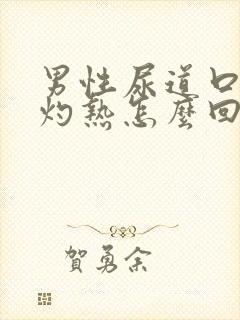 男性尿道口
灼熱怎麼回
賀勇余